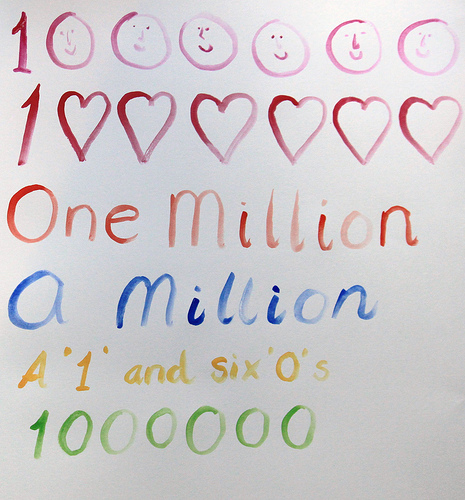 1
1
One Million
A Million
A '1' and six '0's
1000000